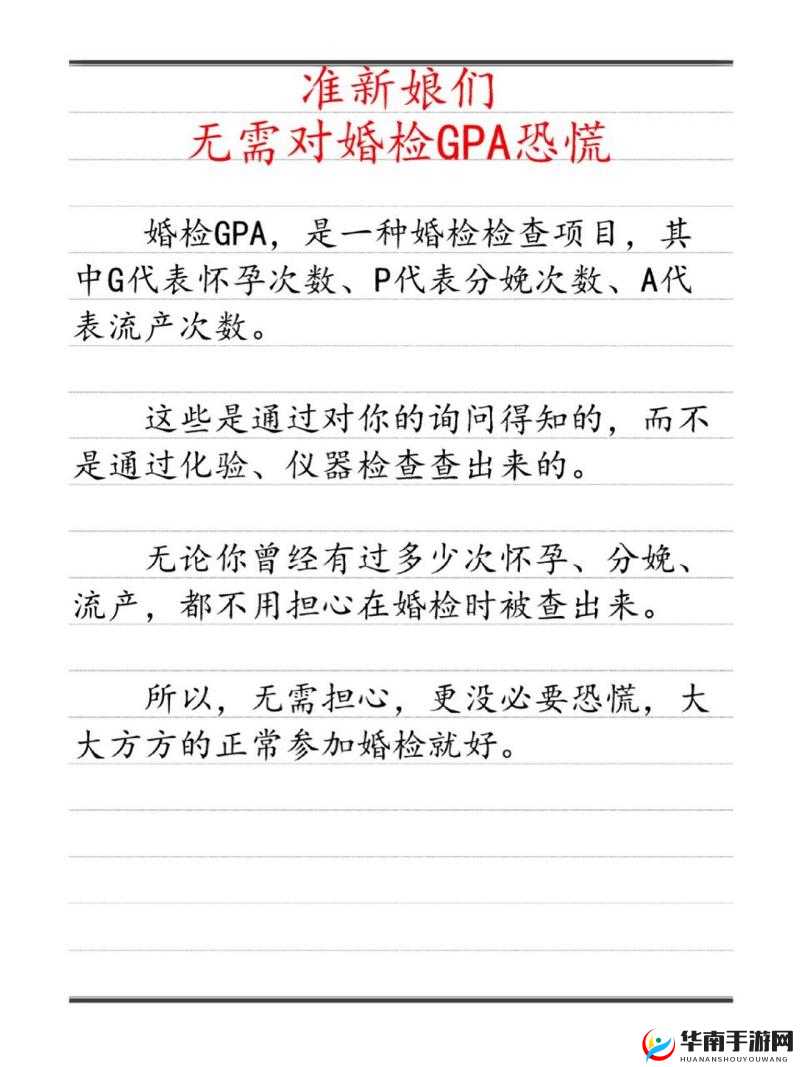 准新娘们
无需对婚检GPA恐慌
婚检GPA，是一种婚检检查项目，其
中G代表怀孕次数、P代表分娩次数、A代
表流产次数。
这些是通过对你的询问得知的，而不
是通过化验、仪器检查查出来的。
无论你曾经有过多少次怀孕、分娩、
流产，都不用担心在婚检时被查出来。
所以，无需担心，更没必要恐慌，大
大方方的正常参加婚检就好。
华南手游网
HUANANSHOUYOUWANG